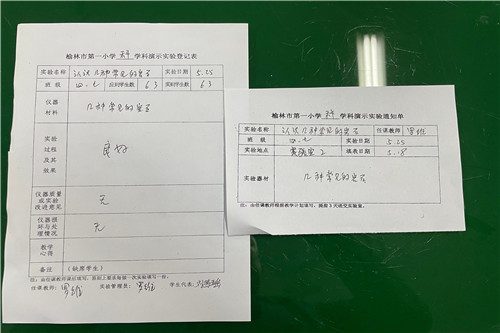 榆林市第一小学 科 学科演示实验登记表
实验名称 认识几种常见的岩石 实验日期 5.25
班 级 四.七 应到学生数 63 实到学生数 63
仪器材料 几种常见的岩石
实验过程及其效果 良好
仪器质量或实验改进意见 无
仪器损坏与处理情况 无
教学心得
备注 (缺席学生)
注:由任课教师课后填写,
任课教师: 实验管理员: 学生代表:
榆林市第一小学 科 学科演示实验通知单
实验名称 认识几种常见的岩石 任课教师
班 级 四.七 实验日期 5.25
实验地点 实验室2 填表日期 5.18
实验器材 几种常见的岩石
注:由任课教师根据教学计划填写,提前3天送交实验室。